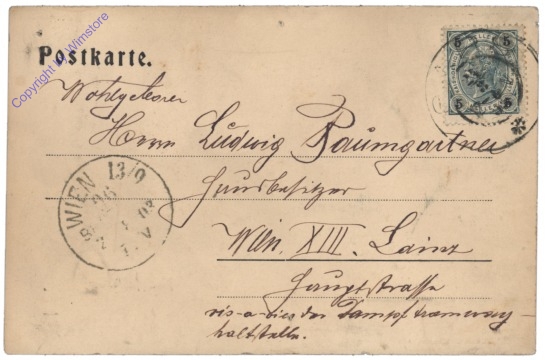 Postkarte.
Copyright by Wimstore
5 HELLER 5
5 5
Wohlgeboren
Herrn Ludwig Baumgartner
Hausbesitzer
Wien, XIII. Lainz
Hauptstrasse
vis-a-vis der Dampftramway-
haltstelle.
WIEN 13/9